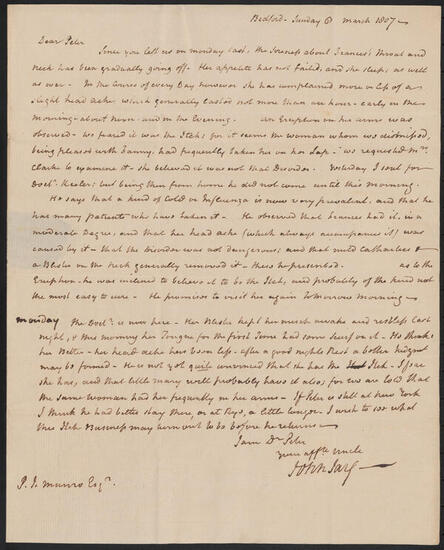 Bedford - Sunday 6 March 1807 -
Dear Peter
Since you left us on monday last, the soreness about Frances's throat and
neck has been gradually going off - Her appetite has not failed, and she sleeps as well
as ever - In the Course of every Day however she has complained more or less of a
slight head ache which generally lasted not more than an hour - early in the
morning - about noon - and in the Evening. an Eruption on her arms was
observed - we feared it was the Itch; for it seems the woman whom we dismissed,
being pleased with Fanny, had frequently taken her on her Lap - we requested Mrs.
Clarke to examine it - she believed it was not that Disorder. Yesterday I sent for
Doctr. Keeler; but being then from home he did not come until this morning.
He says that a kind of Cold or Influenza is now very prevalent, and that he
has many patients who have taken it - He observed that Frances had it, in a
moderate Degree, and that her head ache (which always accompanies it) was
caused by it - that the Disorder was not dangerous; and that mild Catharticks &
a Blister on the neck generally removed it - these he prescribed. as to the
Eruption - he was inclined to believe it to be the Itch, and probably of the kind not
the most easy to cure - He promises to visit her again Tomorrow Morning -
monday The Doctr. is now here - Her Blister kept her much awake and restless last
night, & this morning her Tongue for the first Time had some scurf on it - He thinks
her Better - her head ache has been less - after a good nights Rest a better Judgmt.
may be formed - He is not yet quite convinced that she has the Itch - If so
she has, and that little mary will probably have it also; for we are told that
the same woman had her frequently in her arms - If Peter is still at New York
I think he had better stay there, or at Rye, a little longer. I wish to see what
this Itch Business may turn out to be before he returns -
I am Dr. Peter
your affte. uncle
John Jay -
P. J. Munro Esqr.